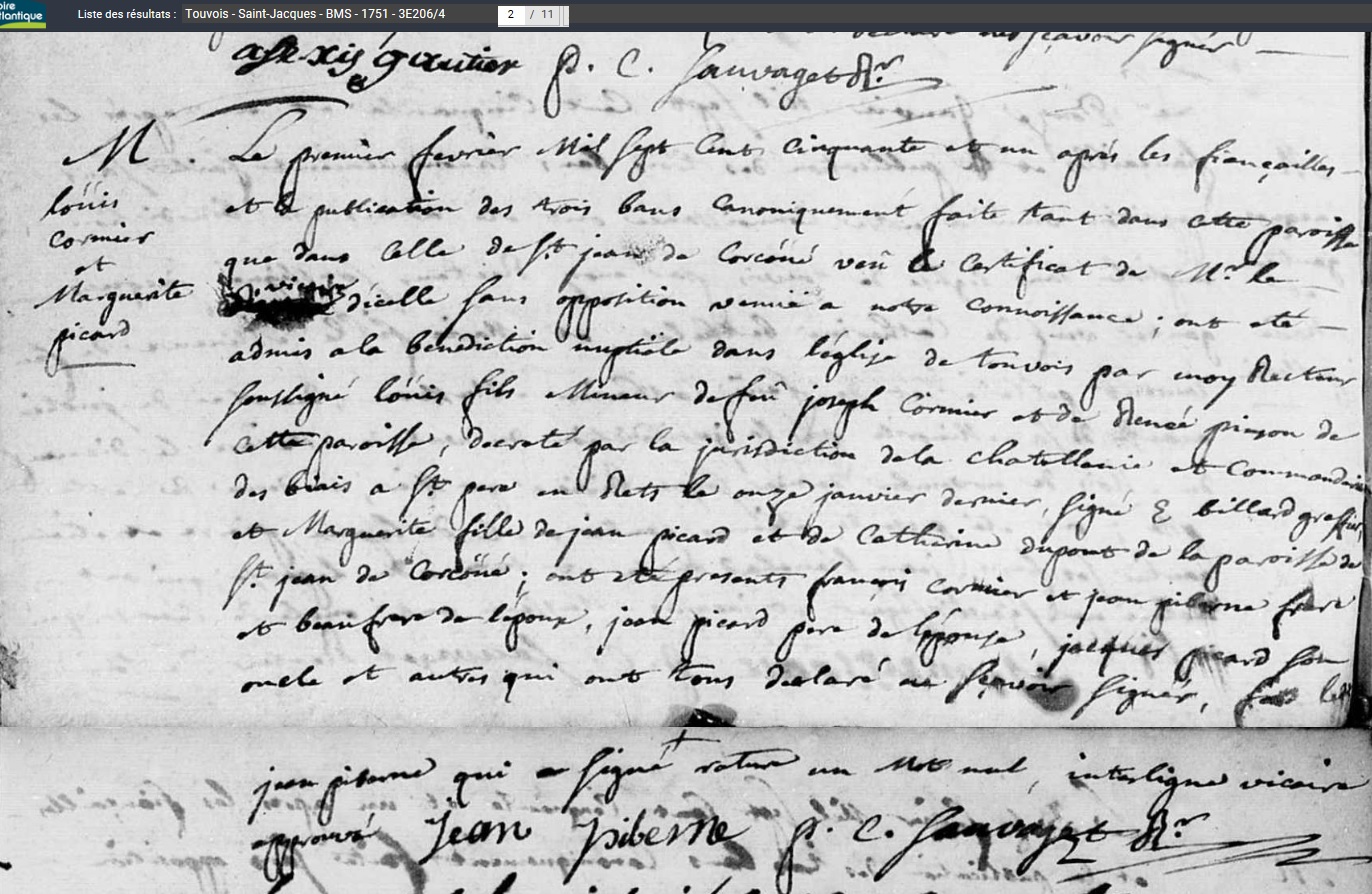 oire
lantique
Liste des résultats : Touvois - Saint-Jacques - BMS - 1751 - 3E206/4 2 / 11
declaré sçavoir signer
alexis gautier p. C. Sauvaget Rr
M. Le premier fevrier Mil sept Cent Cinquante et un aprés les fiançailles
et la publication des trois bans Canoniquement faite tant dans cette paroisse
que dans Celle de St jean de Corcoüé veu le Certificat de Mr le
vicaire dicelle sans opposition venuë a notre connoissance ; ont eté
admis a la benediction nuptiale dans l'église de touvois par moy Recteur
soussigné loüis fils Mineur de feû joseph Cormier et de Renée pinson de
cette paroisse, decreté par la jurisdiction de la chatellenie et Commanderie
des biais a St pere en Rets le onze janvier dernier, signé E billard greffier,
et Marguerite fille de jean picard et de Catherine dupont de la paroisse de
St jean de Corcoüé ; ont eté presents françois cormier et jean piberne frere
et beaufrere de lépoux, jean picard pere de lépouse, jacques picard son
oncle et autres qui ont tous declaré ne sçavoir signer, fors led
loüis
cormier
et
Marguerite
picard
jean piberne qui a signé rature un Mot nul, interligne vicaire
approuvé Jean Piberne p. C. Sauvaget Rr